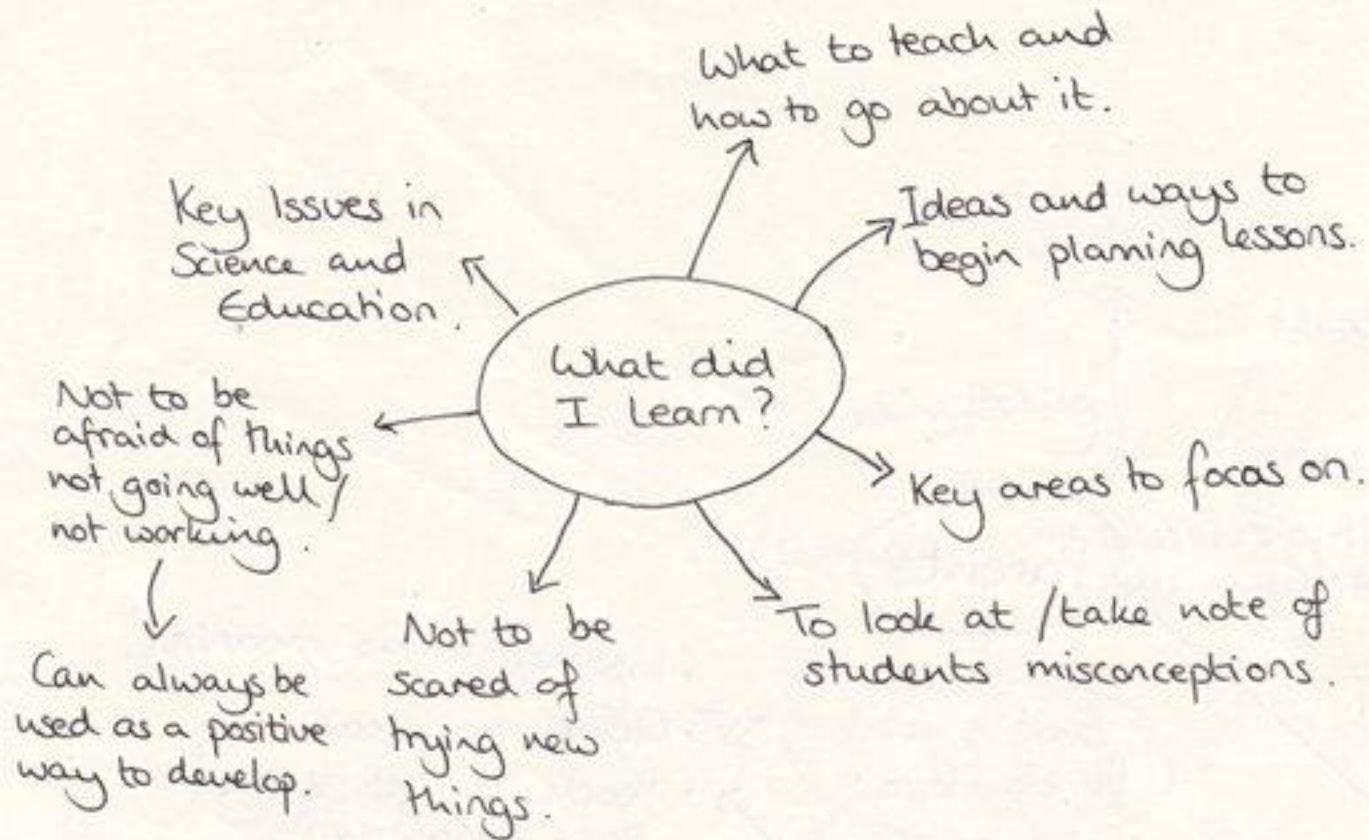 What did
I learn?
What to teach and
how to go about it.
Ideas and ways to
begin planning lessons.
Key areas to focus on.
To look at / take note of
students misconceptions.
Not to be
scared of
trying new
things.
Not to be
afraid of things
not going well /
not working.
Can always be
used as a positive
way to develop.
Key Issues in
Science and
Education.